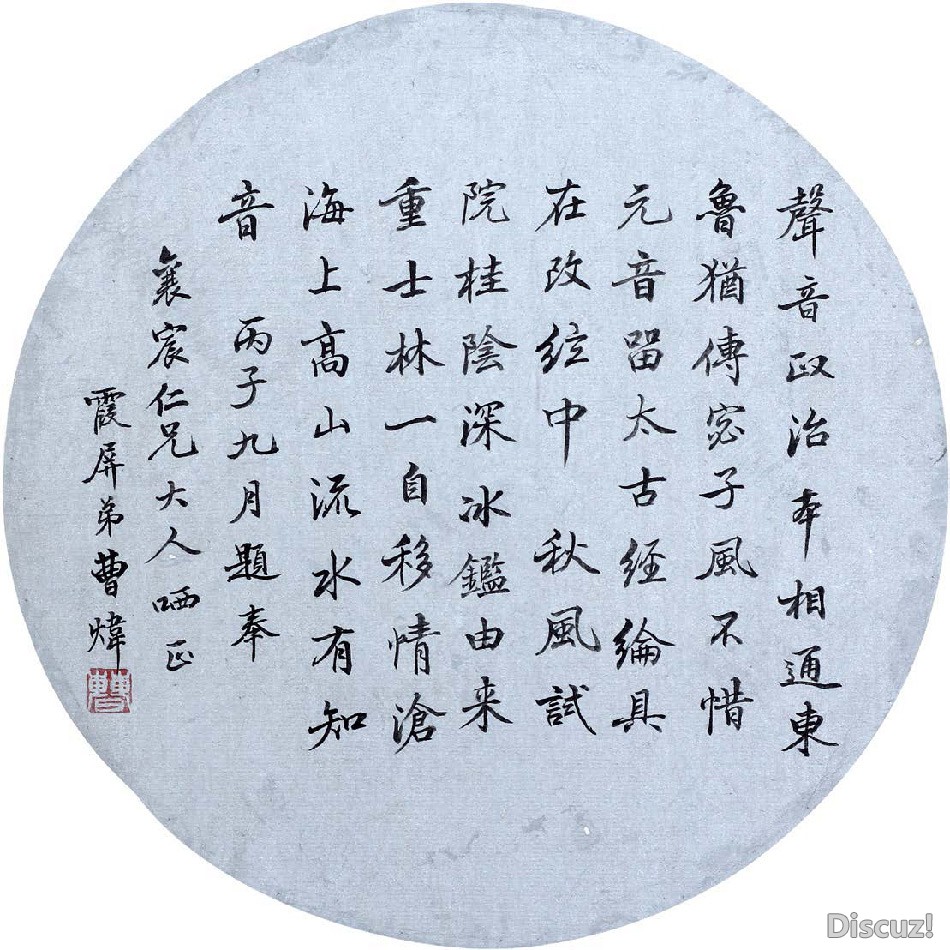 聲音政治本相通東
魯猶傳宓子風不惜
元音留太古經綸具
在改絃中 秋風試
院桂陰深冰鑑由来
重士林一自移情滄
海上高山流水有知
音 丙子九月題奉
襄宸仁兄大人哂正
霞屏弟曹煒
曹
Discuz!